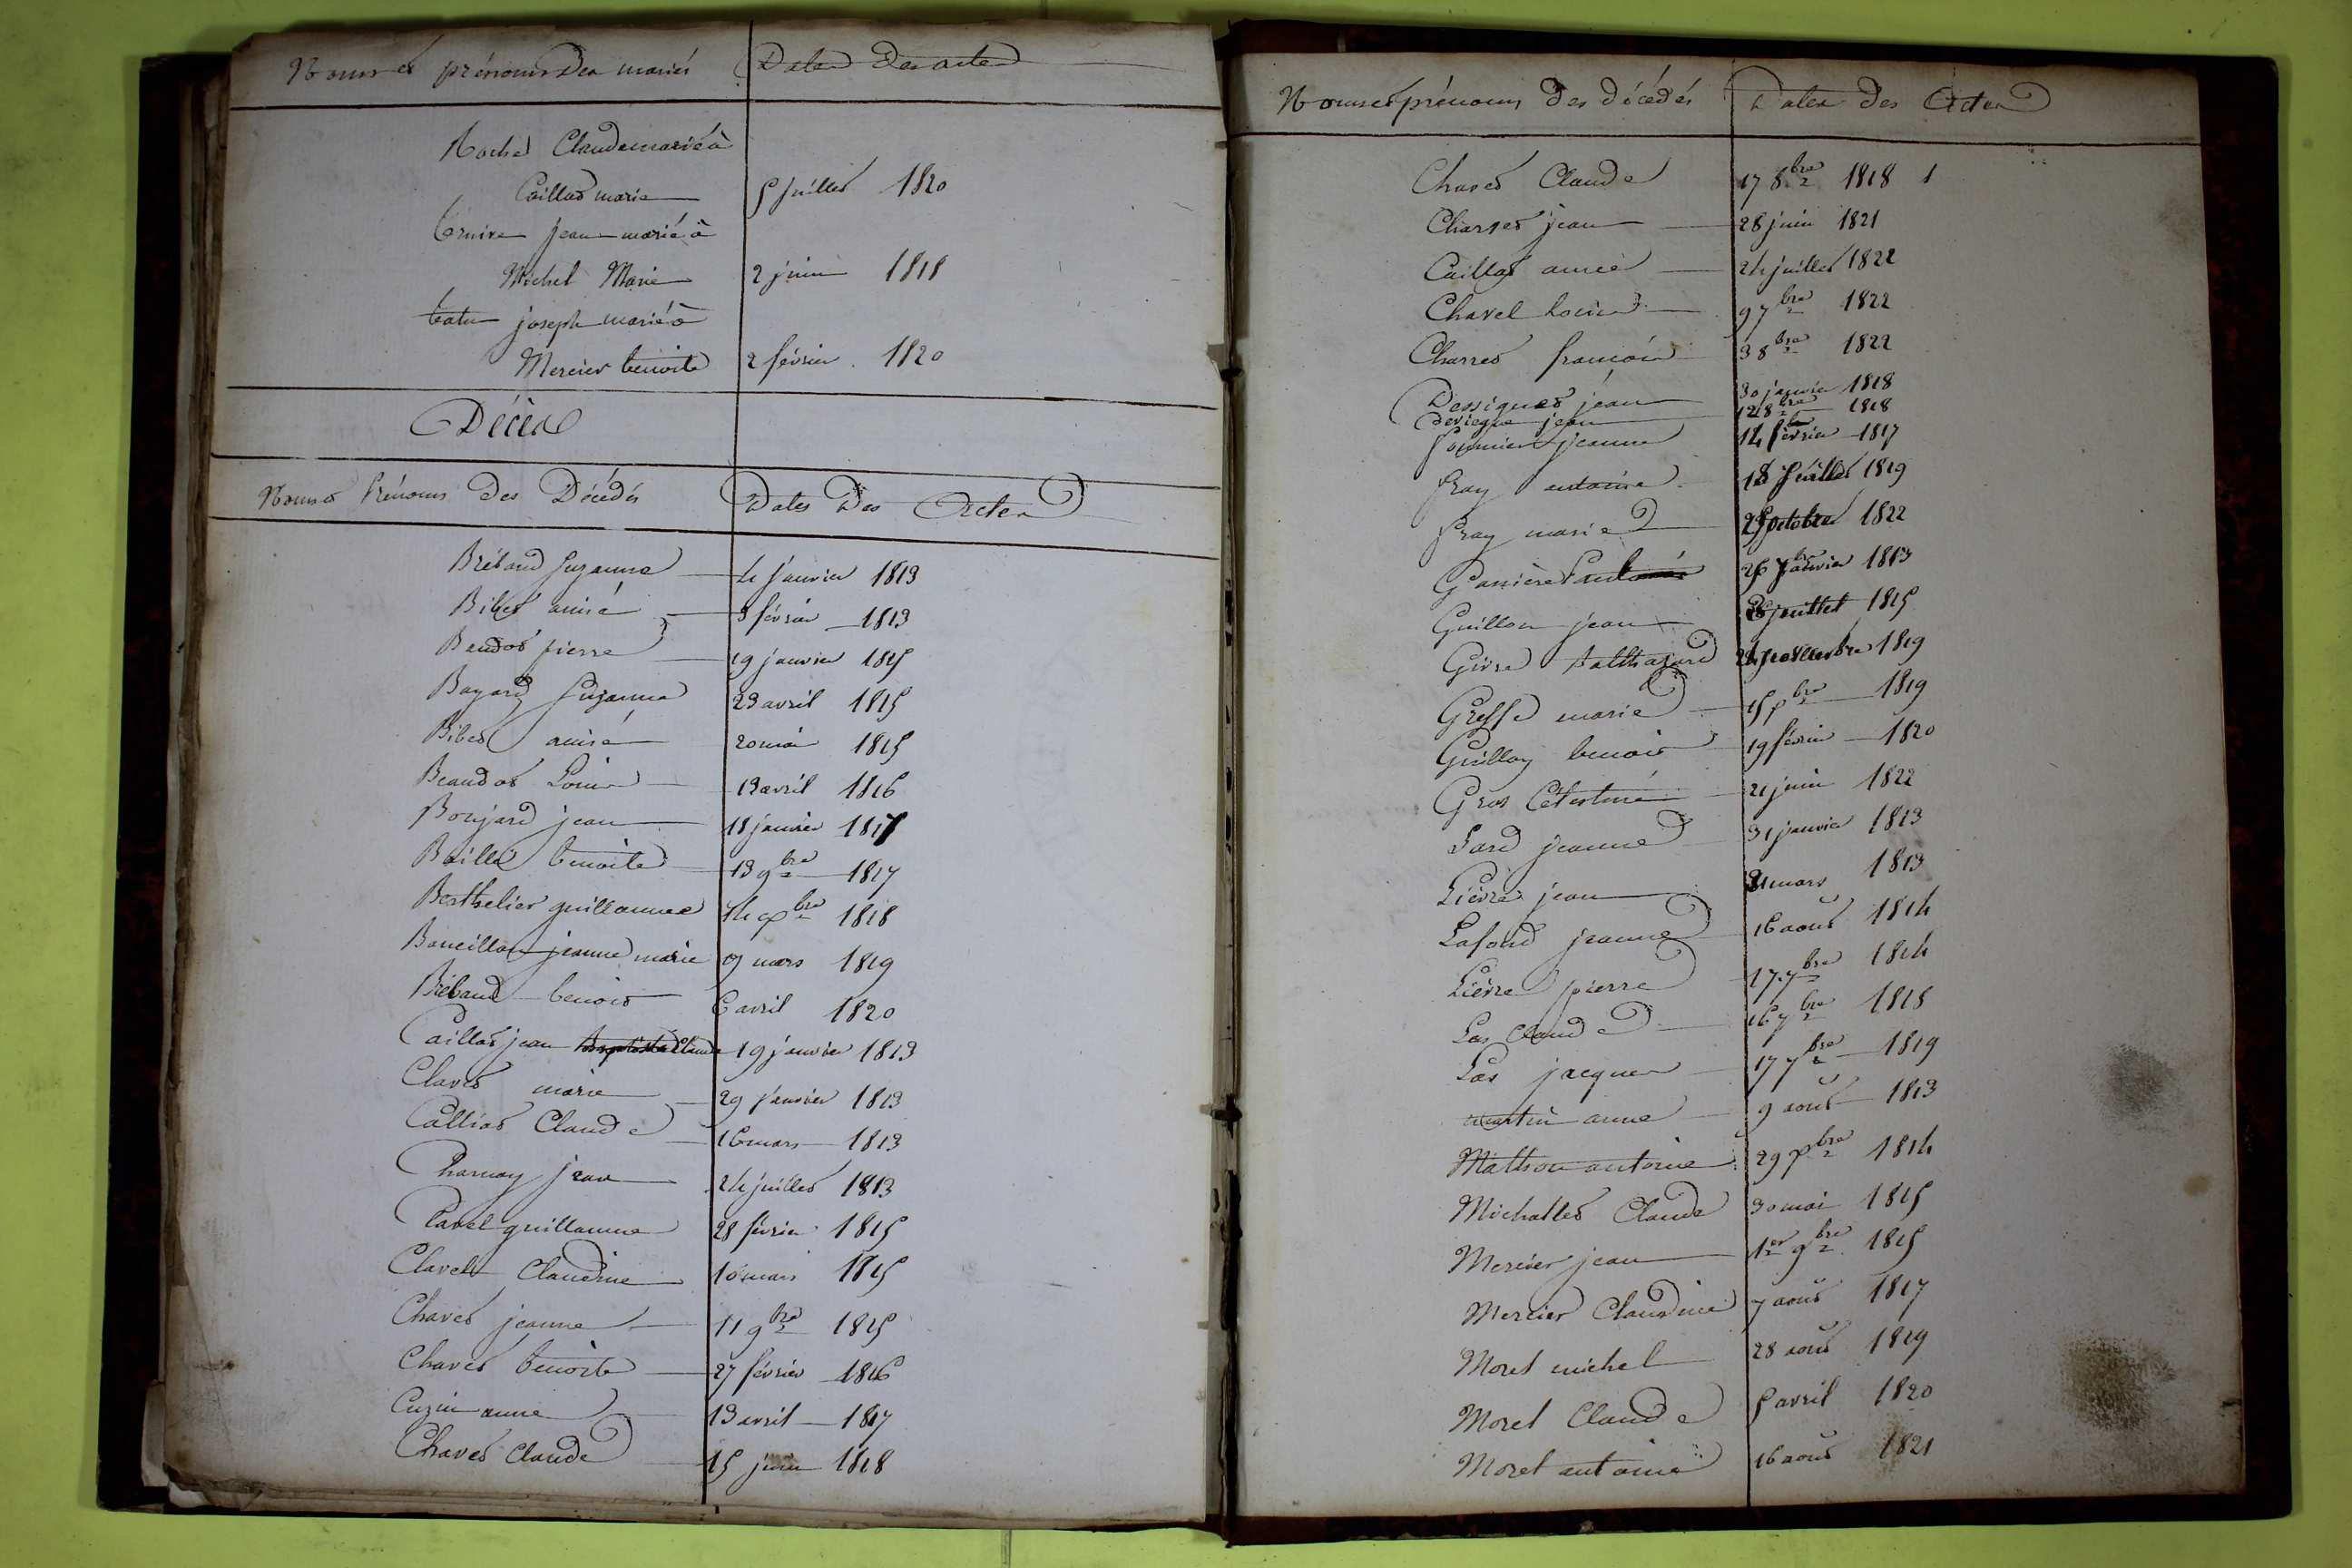 Noms et prénoms des mariés Dates des actes
Roche Claude marié à
Caillot marie 5 juillet 1820
jean marié à
Michel Marie 2 juin 1818
tatu joseph marié à
Mercier benoite 2 février 1820
Décès
Noms et Prénoms des Décédés Dates Des Actes
Bréband Suzanne 4 janvier 1813
Bibet aimé 3 février 1813
Baudot pierre 19 janvier 1815
Bayard Suzanne 23 avril 1815
Bibet aimé 20 mai 1815
Beaudot Louis 13 avril 1816
Bonjard jean 18 janvier 1817
Baille benoite 13 9bre 1817
Berthelier guillaume 14 Xbre 1818
jeanne marie 9 mars 1819
Brébaud benoit 6 avril 1820
Caillot jean Claude 19 janvier 1813
Clavet marie 29 janvier 1813
Calliot Claude 16 mars 1813
Charnay jean 24 juillet 1813
Clavel guillaume 28 février 1815
Clavel Claudine 10 mars 1815
Chavet jeanne 11 9bre 1815
Chavet benoite 27 février 1816
Cuzin anne 13 avril 1817
Chavet Claude 15 juin 1818
Noms et prénoms des décédés Dates des Actes
Chavet Claude 17 8bre 1818 1
Charret jean 28 juin 1821
Caillot aimée 24 juillet 1822
Chavel Louis 9 7bre 1822
Charret françois 3 8bre 1822
Dessignes jean 30 janvier 1818
jean 12 8bre 1818
fournier jeanne 14 février 1817
fray antoine 18 juillet 1819
fray marie octobre 1822
Ganière 1813
Guillon jean juillet 1815
Givre balthazard 1819
Greffe marie 15 Xbre 1819
Guilloy benoit 19 février 1820
Gros Célestine 21 juin 1822
Lard jeanne 31 janvier 1813
Lièvre jean mars 1813
Lafond jeanne 16 aout 1814
Lièvre pierre 17 7bre 1814
Las Claude 16 7bre 1818
Las jacques 17 7bre 1819
martin anne 9 aout 1813
Mathon antoine 29 Xbre 1814
Michallet Claude 30 mai 1815
Mercier jean 1er 9bre 1815
Mercier Claudine 7 aout 1817
Morel michel 28 aout 1819
Morel Claude 5 avril 1820
Morel antoine 16 aout 1821